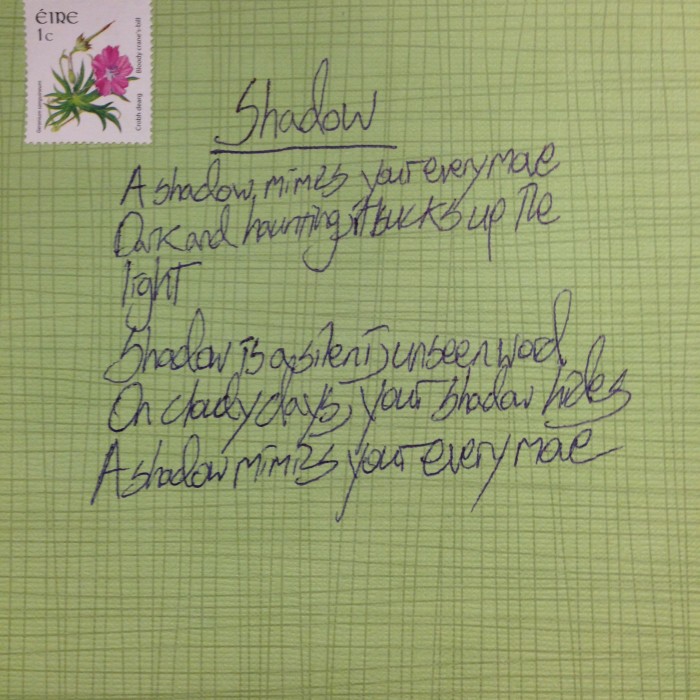 ÉIRE
1c
Geranium sanguineum
Crobh dearg
Bloody crane's bill
Shadow
A shadow mimes your every move
Dark and haunting, it bucks up the
light
Shadow is a silent, unseen word
On cloudy days, your shadow hides
A shadow mimes your every move